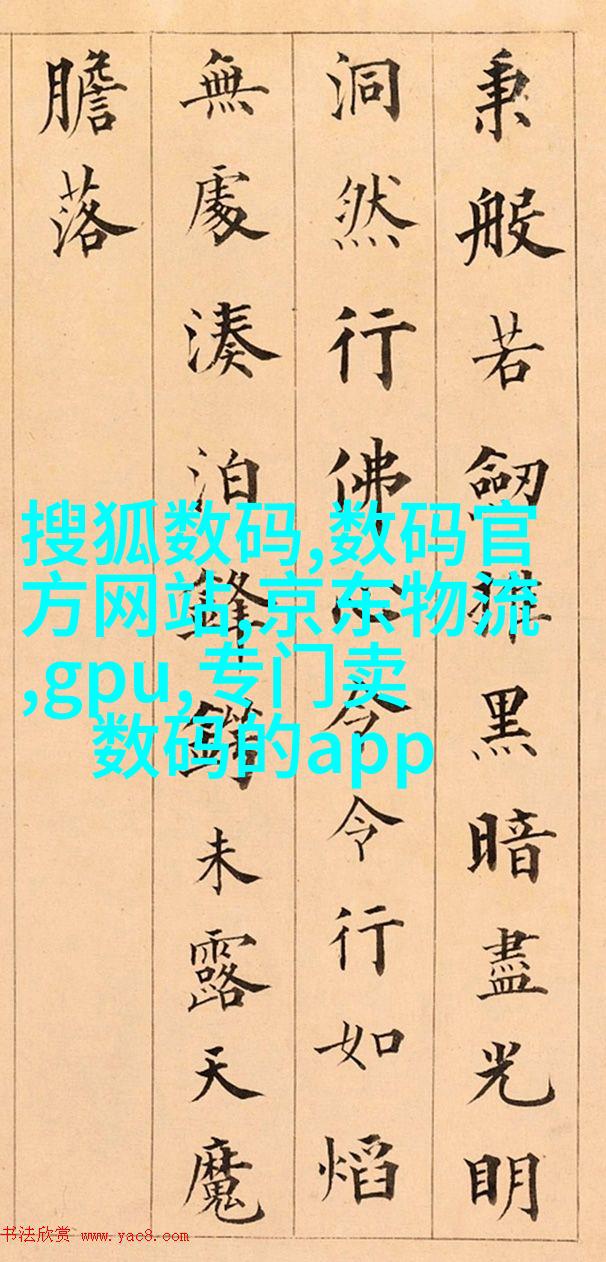 秉般若劒摧黑暗盡光明
洞然行佛心令令行如熖
無處湊泊鋒鍔未露天魔
膽落
搜狐数码,数码官
方网站,京东物流
,gpu,专门卖
数码的app
书法欣赏 www.yac8.com